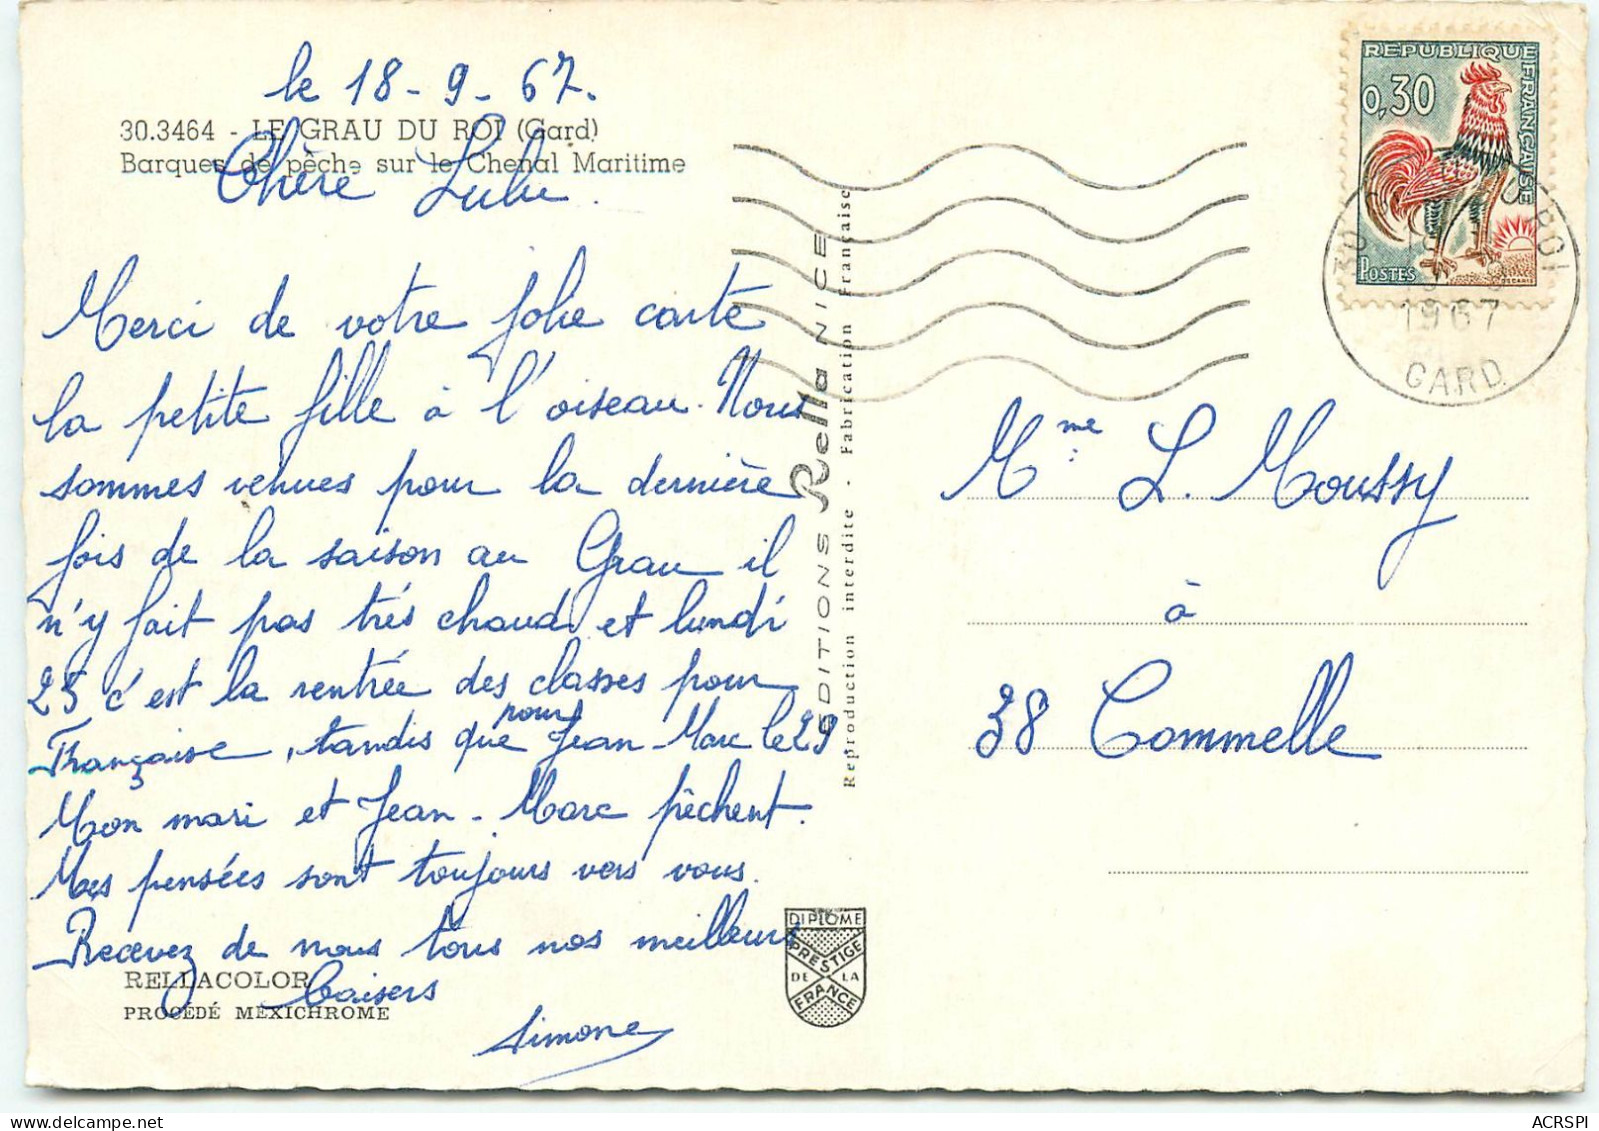 le 18-9-67.
30.3464 - LE GRAU DU ROI (Gard)
Barques de pêche sur le Chenal Maritime
Chère Lulu.
Merci de votre jolie carte
la petite fille à l'oiseau. Nous
sommes venues pour la dernière
fois de la saison au Grau il
n'y fait pas trés chaud et lundi
25 c'est la rentrée des classes pour
Françoise, tandis que pour Jean-Marc le 29
Mon mari et Jean-Marc pêchent.
Mes pensées sont toujours vers vous.
Recevez de nous tous nos meilleurs
baisers
Simone
RELLACOLOR
PROCÉDÉ MEXICHROME
EDITIONS Rella NICE
Reproduction interdite - Fabrication Française
DIPLOME
PRESTIGE
DE LA
FRANCE
REPUBLIQUE FRANÇAISE
0,30
POSTES
DECARIS
30
ROI
1967
GARD
Mme L. Moussy
à
38 Commelle
ACRSPI